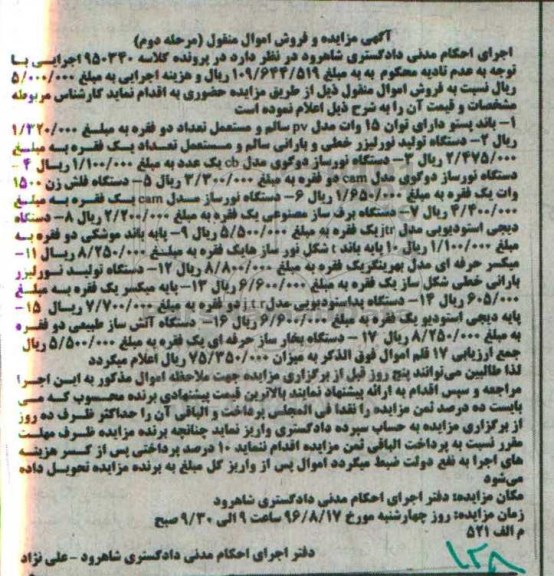 آگهی مزایده و فروش اموال منقول (مرحله دوم)
اجرای احکام مدنی دادگستری شاهرود در نظر دارد در پرونده کلاسه ۹۵۰۳۴۰ اجرایی با
توجه به عدم تادیه محکوم به به مبلغ ۱۰۹/۶۴۴/۵۱۹ ریال و هزینه اجرایی به مبلغ ۵/۰۰۰/۰۰۰
ریال نسبت به فروش اموال منقول ذیل از طریق مزایده حضوری به اقدام نماید کارشناس مربوطه
مشخصات و قیمت آن را به شرح ذیل اعلام نموده است
۱- باند پستو دارای توان ۱۵ وات مدل pv سالم و مستعمل تعداد دو فقره به مبلغ ۱/۳۲۰/۰۰۰
ریال ۲- دستگاه تولید نورلیزر خطی و بارانی سالم و مستعمل تعداد یک فقره به مبلغ
۲/۴۷۵/۰۰۰ ریال ۳- دستگاه نورساز دوگوی مدل cb یک عدد به مبلغ ۱/۱۰۰/۰۰۰ ریال ۴-
دستگاه نورساز دوگوی مدل cam دو فقره به مبلغ ۳/۳۰۰/۰۰۰ ریال ۵- دستگاه فلش زن ۱۵۰۰
وات یک فقره به مبلغ ۱/۶۵۰/۰۰۰ ریال ۶- دستگاه نورساز مدل cam یک فقره به مبلغ
۴/۴۰۰/۰۰۰ ریال ۷- دستگاه برف ساز مصنوعی یک فقره به مبلغ ۲/۲۰۰/۰۰۰ ریال ۸- دستگاه
دیجی استودیویی مدل jtr یک فقره به مبلغ ۵/۵۰۰/۰۰۰ ریال ۹- پایه باند موشکی دو فقره به
مبلغ ۱/۱۰۰/۰۰۰ ریال ۱۰ پایه باند t شکل نور ساز هایک فقره به مبلغ ۸/۲۵۰/۰۰۰ ریال ۱۱-
میکسر حرفه ای مدل بهرینگریک فقره به مبلغ ۸/۸۰۰/۰۰۰ ریال ۱۲- دستگاه تولید نورلیزر
بارانی خطی شکل ساز یک فقره به مبلغ ۶/۶۰۰/۰۰۰ ریال ۱۳- پایه میکسر یک فقره به مبلغ
۶۰۵/۰۰۰ ریال ۱۴- دستگاه پداستودیویی مدل jtr دو فقره به مبلغ ۷/۷۰۰/۰۰۰ ریال ۱۵-
پایه دیجی استودیو یک فقره به مبلغ ۶/۶۰۰/۰۰۰ ریال ۱۶- دستگاه آتش ساز طبیعی دو فقره
به مبلغ ۸/۲۵۰/۰۰۰ ریال ۱۷- دستگاه بخار ساز حرفه ای یک فقره به مبلغ ۵/۵۰۰/۰۰۰ ریال
جمع ارزیابی ۱۷ قلم اموال فوق الذکر به میزان ۷۵/۳۵۰/۰۰۰ ریال اعلام میگردد
لذا طالبین می‌توانند پنج روز قبل از برگزاری مزایده جهت ملاحظه اموال مذکور به این اجرا
مراجعه و سپس اقدام به ارائه پیشنهاد نمایند بالاترین قیمت پیشنهادی برنده محسوب که می
بایست ده درصد ثمن مزایده را نقدا فی المجلس پرداخت و الباقی آن را حداکثر ظرف ده روز
از برگزاری مزایده به حساب سپرده دادگستری واریز نماید چنانچه برنده مزایده ظرف مهلت
مقرر نسبت به پرداخت الباقی ثمن مزایده اقدام ننماید ۱۰ درصد پرداختی پس از کسر هزینه
های اجرا به نفع دولت ضبط میگردد اموال پس از واریز کل مبلغ به برنده مزایده تحویل داده
می‌شود
مکان مزایده: دفتر اجرای احکام مدنی دادگستری شاهرود
زمان مزایده: روز چهارشنبه مورخ ۹۶/۸/۱۷ ساعت ۹ الی ۹/۳۰ صبح
م الف ۵۲۱
دفتر اجرای احکام مدنی دادگستری شاهرود - علی نژاد
۱۲۸